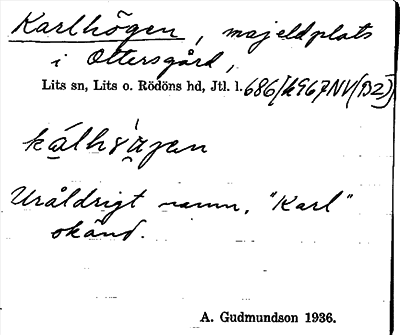 Karlhögen, majeldplats
i Ottersgård,
Lits sn, Lits o. Rödöns hd, Jtl. l. 686/k967NV(DZ)
Uråldrigt namn. "Karl"
okänd.
A. Gudmundson 1936.